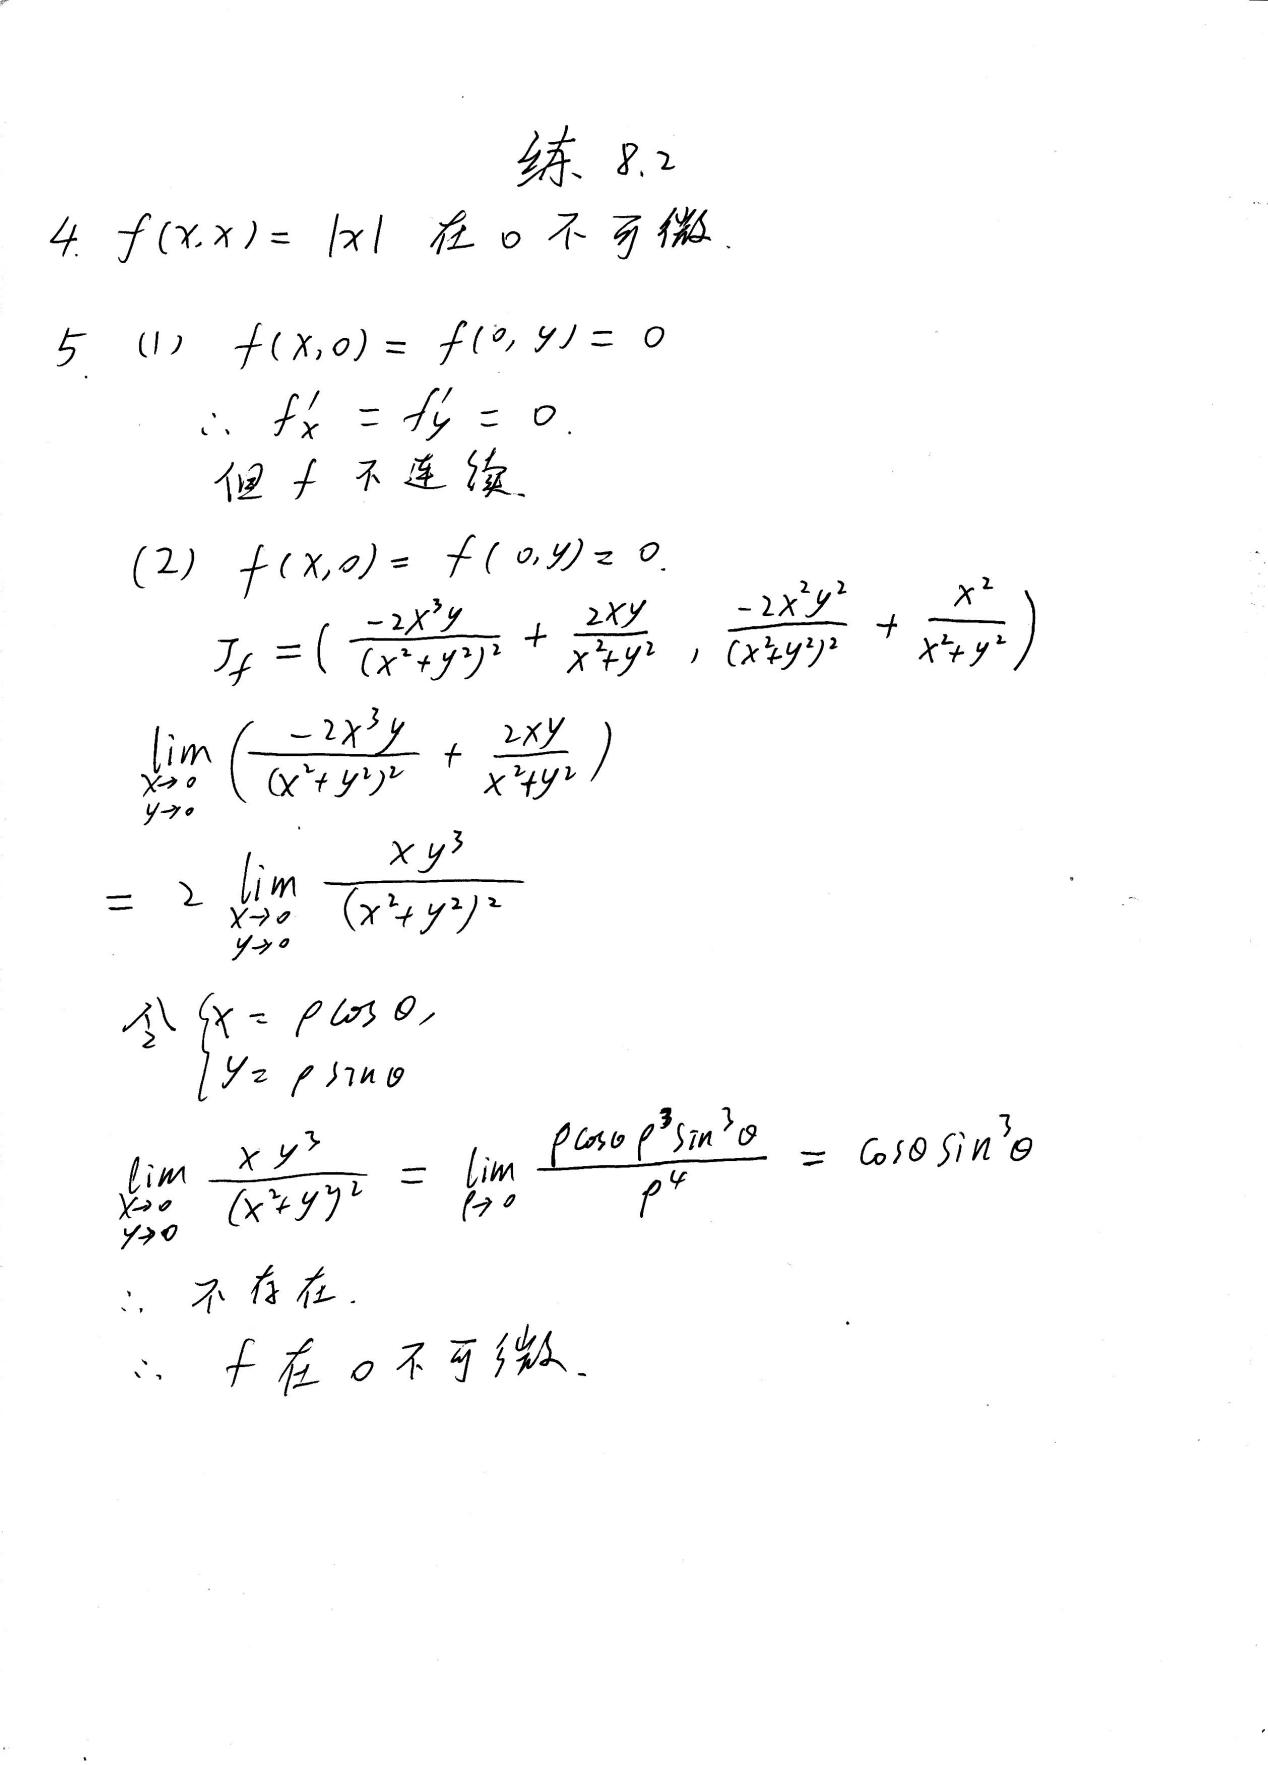 练 8.2
4. f(x,x) = |x| 在 0 不可微.
5. (1) f(x,0) = f(0,y) = 0
∴ f'x = f'y = 0.
但 f 不连续.
(2) f(x,0) = f(0,y) = 0.
J_f = ( \frac{-2x^3y}{(x^2+y^2)^2} + \frac{2xy}{x^2+y^2} , \frac{-2x^2y^2}{(x^2+y^2)^2} + \frac{x^2}{x^2+y^2} )
\lim_{x→0 y→0} ( \frac{-2x^3y}{(x^2+y^2)^2} + \frac{2xy}{x^2+y^2} )
= 2 \lim_{x→0 y→0} \frac{xy^3}{(x^2+y^2)^2}
令 { x = ρ cos θ,
y = ρ sin θ
\lim_{x→0 y→0} \frac{xy^3}{(x^2+y^2)^2} = \lim_{ρ→0} \frac{ρ cosθ ρ^3 sin^3 θ}{ρ^4} = cosθ sin^3 θ
∴ 不存在.
∴ f 在 0 不可微.